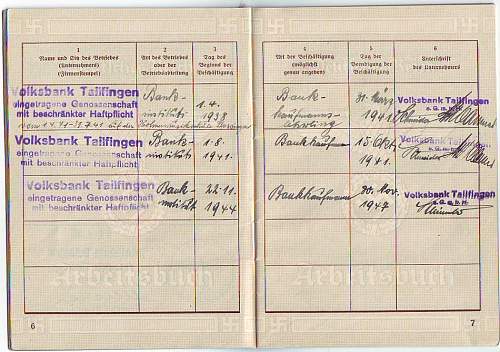 1
Name und Sitz des Betriebes
(Unternehmers)
(Firmenstempel)
2
Art des Betriebes
oder der
Betriebsabteilung
3
Tag des
Beginns der
Beschäftigung
Volksbank Tailfingen
eingetragene Genossenschaft
mit beschränkter Haftpflicht
Bank-
institut
1.4.
1938
Volksbank Tailfingen
eingetragene Genossenschaft
mit beschränkter Haftpflicht
Bank-
institut
1.8.
1941.
Volksbank Tailfingen
eingetragene Genossenschaft
mit beschränkter Haftpflicht
Bank-
institut
22.11.
1944
Arbeitsbuch
6
4
Art der Beschäftigung
(möglichst
genau angeben)
5
Tag der
Beendigung der
Beschäftigung
6
Unterschrift
des Unternehmers
Bank-
kaufmanns-
lehrling
31. März
1941
Volksbank Tailfingen
e.G.m.b.H.
Bankkaufmann
15. Okt.
1941.
Volksbank Tailfingen
e.G.m.b.H.
Bankkaufmann
30. Nov.
1947
Volksbank Tailfingen
e.G.m.b.H.
Arbeitsbuch
7